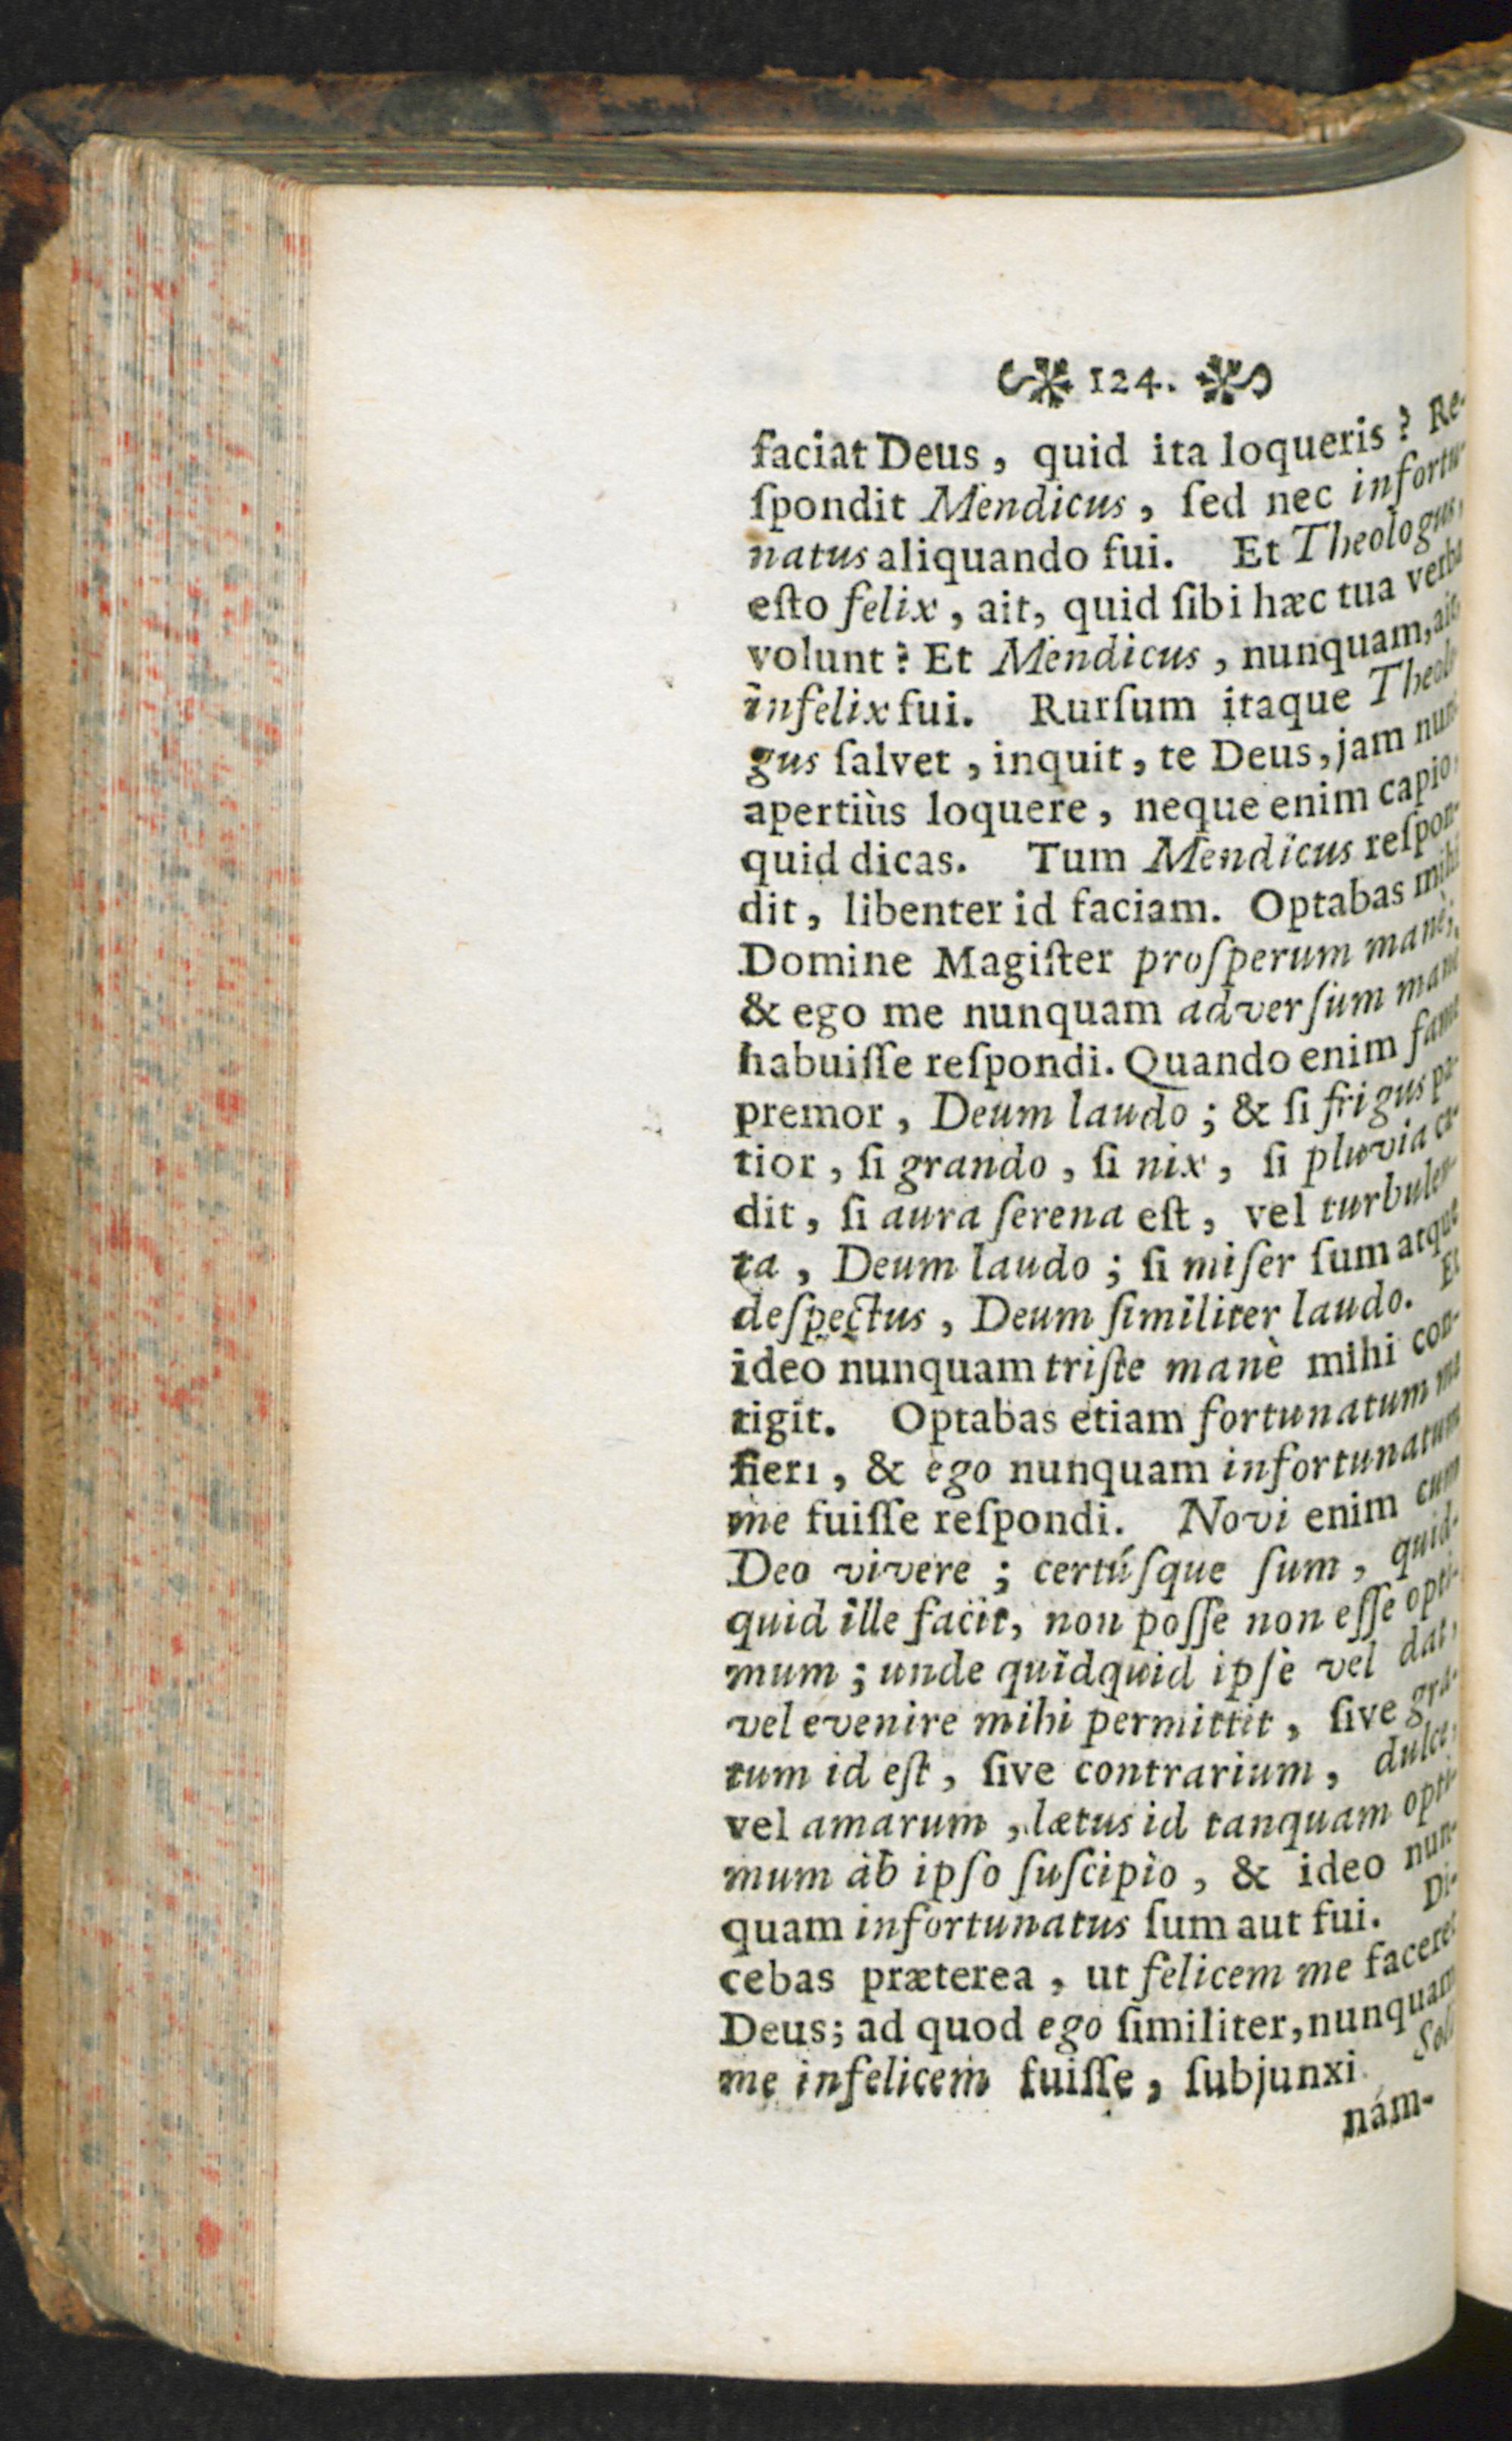 124.
faciat Deus, quid ita loqueris? Re-
ſpondit Mendicus, ſed nec infortu-
natus aliquando fui. Et Theologus,
eſto felix, ait, quid ſibi hæc tua verba
volunt? Et Mendicus, nunquam, ait,
infelix fui. Rurſum itaque Theolo
gus ſalvet, inquit, te Deus, jam nunc
apertiùs loquere, neque enim capio,
quid dicas. Tum Mendicus reſpon-
dit, libenter id faciam. Optabas mihi
Domine Magiſter proſperum manè;
& ego me nunquam adverſum manè
habuiſſe reſpondi. Quando enim fame
premor, Deum laudo; & ſi frigus pa-
tior, ſi grando, ſi nix, ſi pluvia ca-
dit, ſi aura ſerena eſt, vel turbulen-
ta, Deum laudo; ſi miſer ſum atque
deſpectus, Deum ſimiliter laudo. Et
ideo nunquam triſte manè mihi con-
tigit. Optabas etiam fortunatum me
fieri, & ego nunquam infortunatum
me fuiſſe reſpondi. Novi enim cum
Deo vivere; certúſque ſum, quid-
quid ille facit, non poſſe non eſſe opti-
mum; unde quidquid ipſe vel dat,
vel evenire mihi permittit, ſive gra-
tum id eſt, ſive contrarium, dulce,
vel amarum, lætus id tanquam opti-
mum ab ipſo ſuſcipio, & ideo nun-
quam infortunatus ſum aut fui. Di-
cebas præterea, ut felicem me faceret
Deus; ad quod ego ſimiliter, nunquam
me infelicem fuiſſe, ſubjunxi
nam-